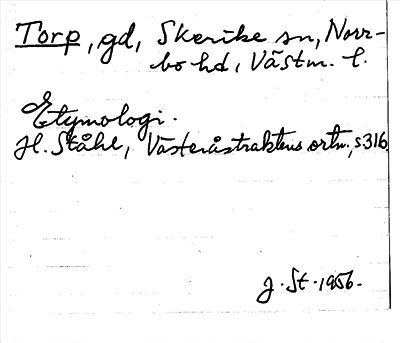 Torp, gd, Skerike sn, Norr-
bo hd, Västm. l.
Etymologi.
H. Ståhl, Västeråstraktens ortn., s.316.
J. St. 1956.